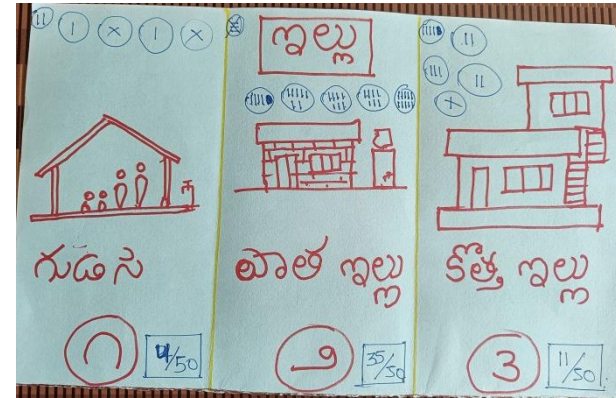 ఇల్లు
గుడిసె
పాత ఇల్లు
కొత్త ఇల్లు
౧
4/50
౨
35/50
౩
11/50